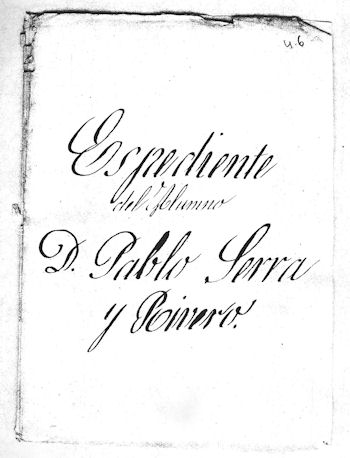 4.6
Espediente
del Alumno
D. Pablo Serra
y Rivero.